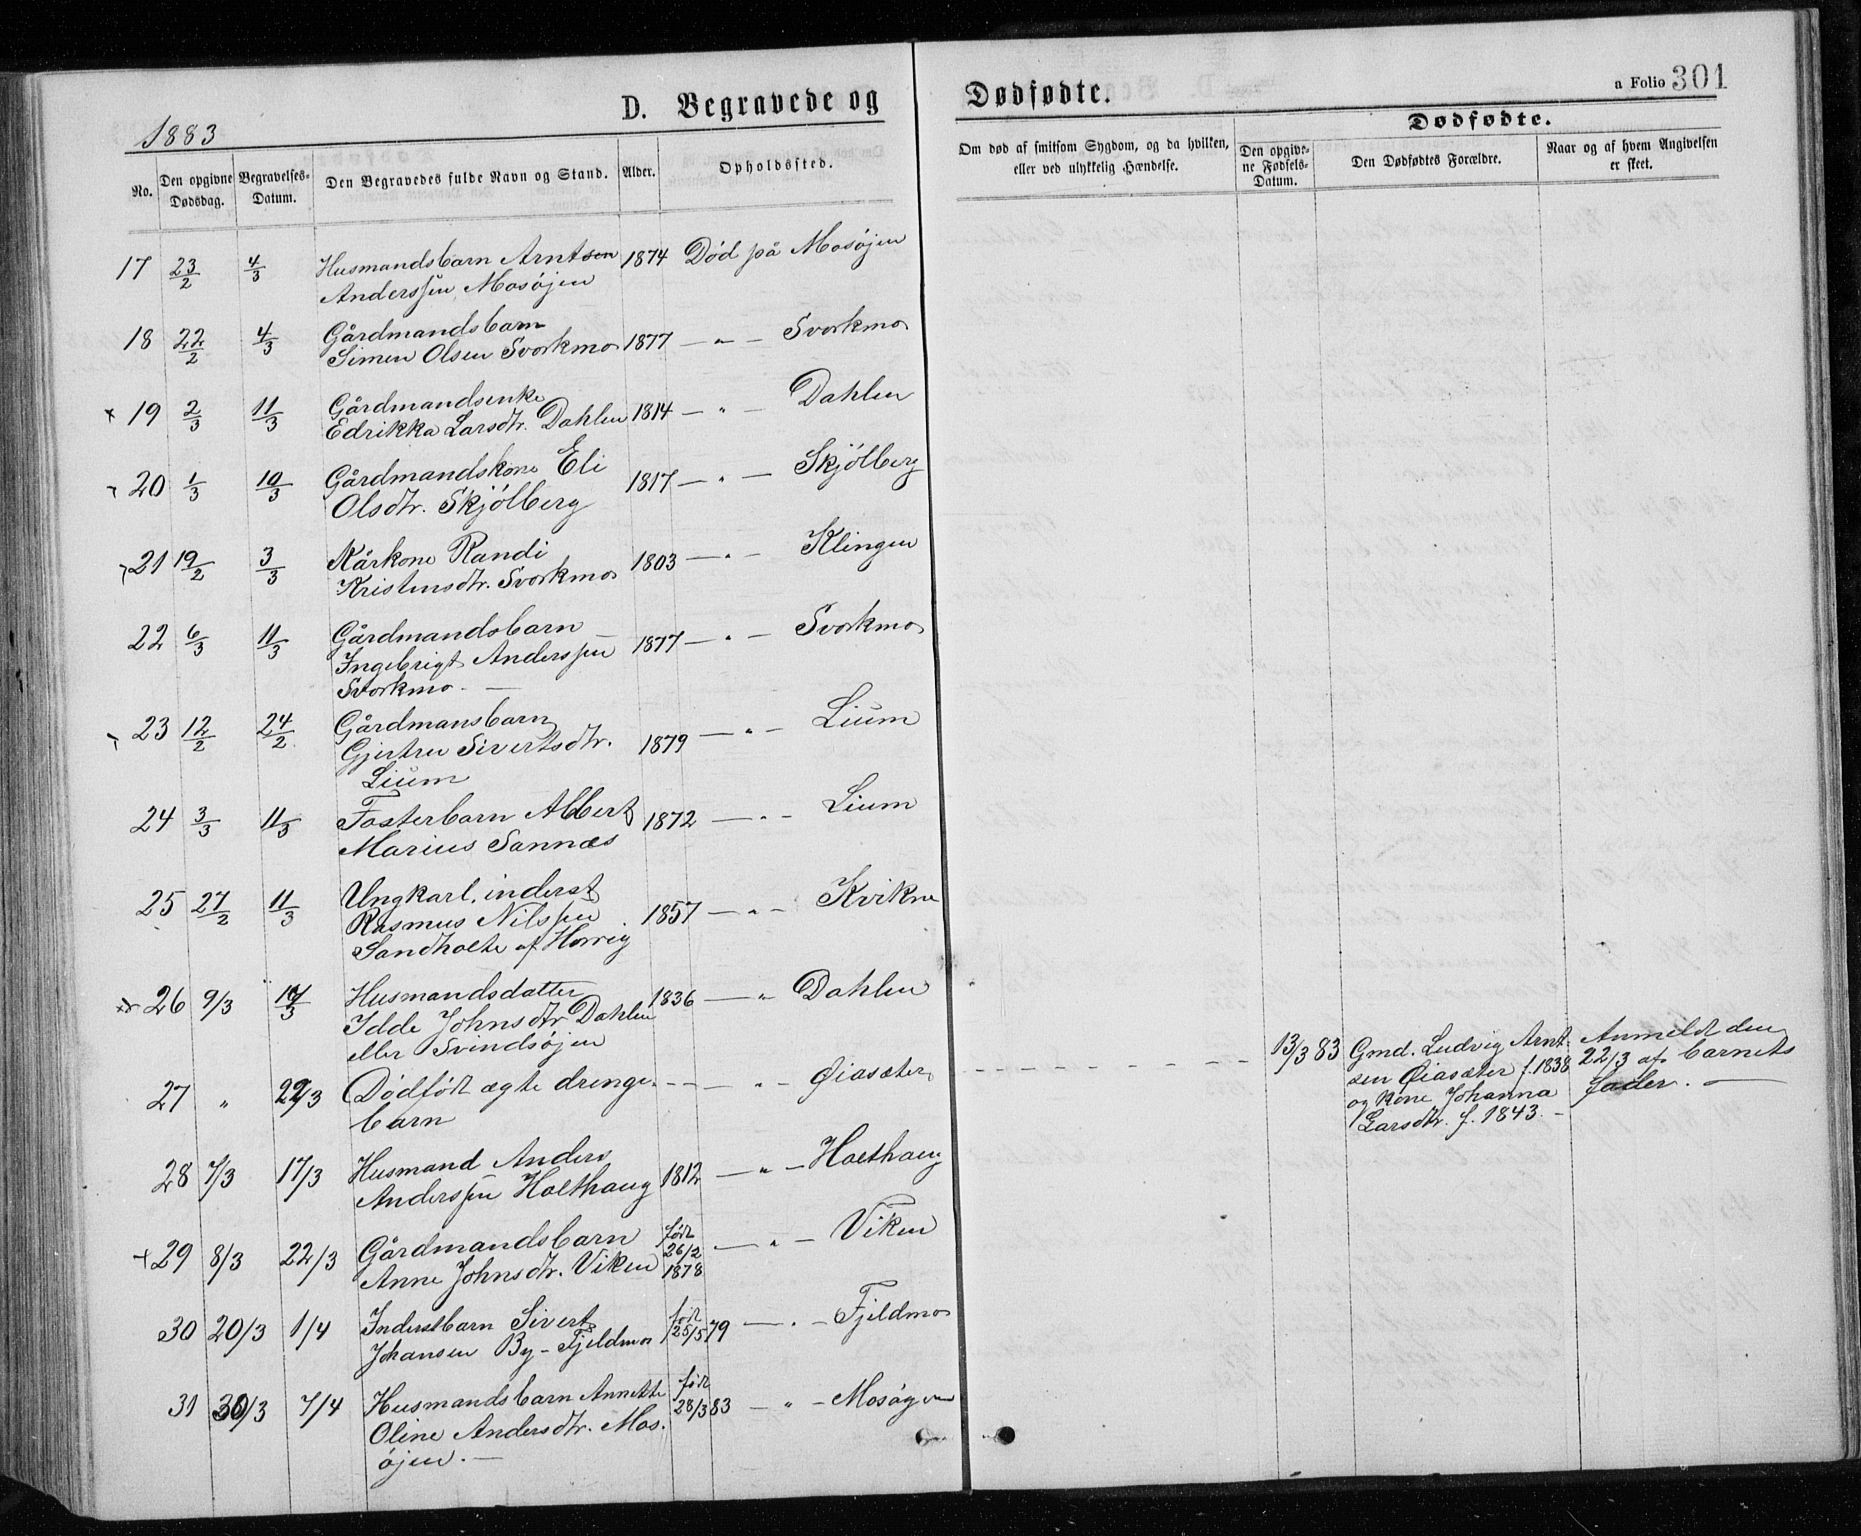 D. Begravede og Dødfødte.
a Folio 301
1883
No.
Den opgivne Dødsdag.
Begravelses-Datum.
Den Begravedes fulde Navn og Stand.
Alder.
Opholdssted.
Om død af smitsom Sygdom, og da hvilken,
eller ved ulykkelig Hændelse.
Dødfødte.
Den opgivne Fødsels-Datum.
Den Dødfødtes Forældre.
Naar og af hvem Angivelsen
er skeet.
17 23/2 4/3 Husmandsbarn Arntsen 1874 Død på Mosøjen
Anderssen Mosøjen
18 22/2 4/3 Gårdmandsbarn
Simen Olsen Svorkmo 1877 — " — Svorkmo
19 2/3 11/3 Gårdmandsenke
Edrikka Larsdtr. Dahlen 1814 — " — Dahlen
20 1/3 10/3 Gårdmandskone Eli 1817 — " — Skjölberg
Olsdtr. Skjölberg
21 19/2 3/3 Kårkone Randi 1803 — " — Klingen
Kristensdtr. Svorkmo
22 6/3 11/3 Gårdmandsbarn
Ingebrigt Anderssen 1877 — " — Svorkmo
Svorkmo. —
23 12/2 24/2 Gårdmansbarn
Gjertru Sivertsdtr. 1879 — " — Lium
Lium
24 3/3 11/3 Fosterbarn Albert 1872 — " — Lium
Marius Sannæs
25 27/2 11/3 Ungkarl, inderst
Rasmus Nilssen 1857 — " — Kvikne
Sandholte af Horrig
26 9/3 17/3 Husmandsdatter 1836 — " Dahlen
Idde Johnsdtr Dahlen
eller Svindsøjen
27 " 22/3 Dødfødt ægte drenge- — — — " — Øiasæter
barn
13/3 83 Gmd. Ludvig Arnt-
sen Øiasæter f. 1838
og kone Johanna
Larsdtr. f. 1843. —
Anmeldt den
22/3 af barnets
fader. —
28 7/3 17/3 Husmand Anders
Anderssen Holthaug 1812 — " — Holthaug
29 8/3 22/3 Gårdmandsbarn født 26/2 1878 — " — Viken
Anne Johnsdtr. Viken
30 20/3 1/4 Inderstbarn Sivert født 25/5 79 — " — Fjeldmo
Johansen By-Fjeldmo
31 30/3 7/4 Husmandsbarn Annette født 28/3 83 — " — Mosøyen
Oline Andersdtr. Mos-
øjen. —